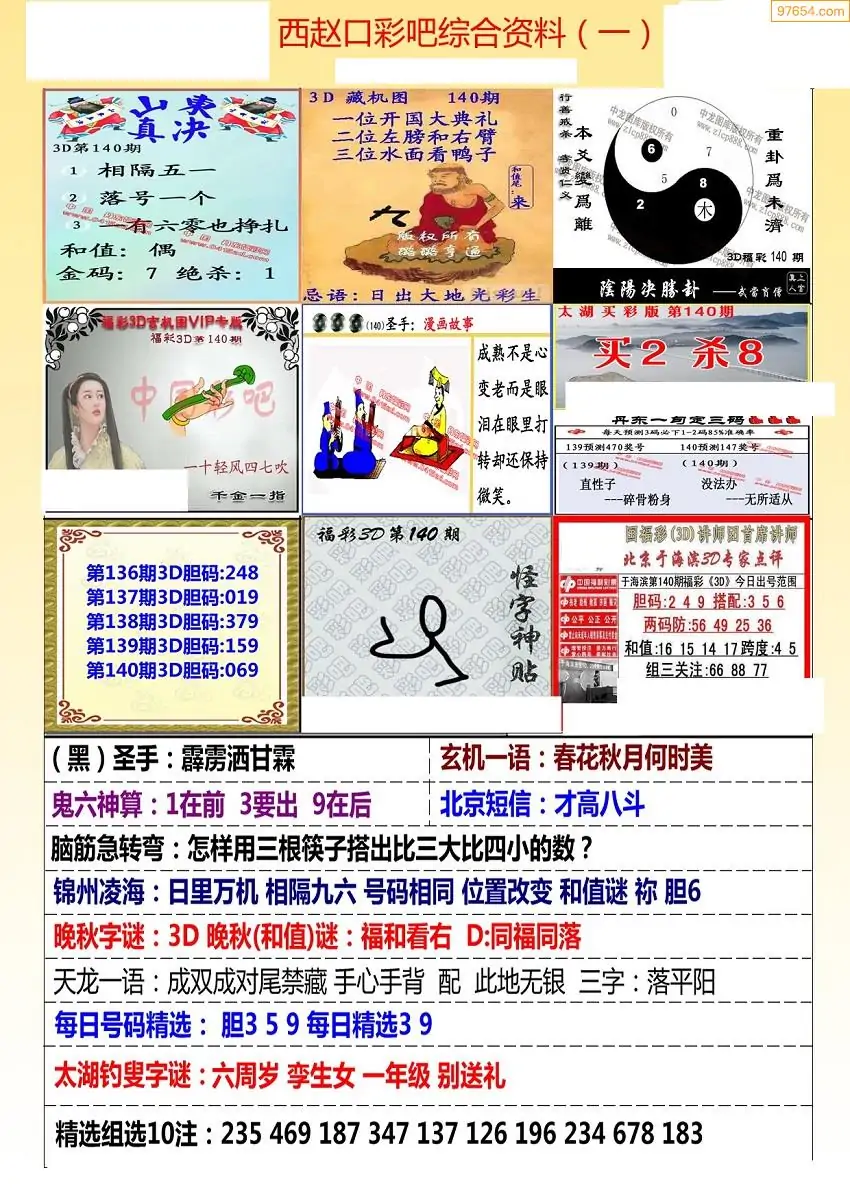 97654.com
西赵口彩吧综合资料（一）
山夷
真决
3D第140期
1 相隔五一
2 落号一个
3 一有六零也挣扎
和值: 偶
金码: 7 绝杀: 1
3D 藏机图 140期
一位开国大典礼
二位左膀和右臂
三位水面看鸭子
和值尾:来
版权所有
忌语:日出大地光彩生
行善戒杀
本爻變爲離
重卦爲未濟
0
6
7
5
8
2
木
中龙图库版权所有
www.zlcp888.com
3D福彩 140 期
陰陽决勝卦
福彩3D玄机图VIP专版
福彩3D第140期
中国彩吧
一十轻风四七吹
千金一指
(140)圣手: 漫画故事
成熟不是心
变老而是眼
泪在眼里打
转却还保持
微笑。
太湖买彩版 第140期
买2 杀8
丹东一句定三码
每天预测3码必下1-2码85%准确率
139预测470奖号
140预测147奖号
(139期)
(140期)
直性子
没法办
---碎骨粉身
---无所适从
第136期3D胆码:248
第137期3D胆码:019
第138期3D胆码:379
第139期3D胆码:159
第140期3D胆码:069
福彩3D第140期
怪字神贴
国福彩(3D)讲师团首席讲师
北京于海滨3D专家点评
中国福利彩票
于海滨第140期福彩《3D》今日出号范围
胆码:2 4 9 搭配:3 5 6
公平 公正 公开
两码防:56 49 25 36
和值:16 15 14 17 跨度:4 5
组三关注:66 88 77
(黑)圣手:霹雳洒甘霖
玄机一语:春花秋月何时美
鬼六神算:1在前 3要出 9在后
北京短信:才高八斗
脑筋急转弯:怎样用三根筷子搭出比三大比四小的数?
锦州凌海:日里万机 相隔九六 号码相同 位置改变 和值谜 祢 胆6
晚秋字谜:3D 晚秋(和值)谜:福和看右 D:同福同落
天龙一语:成双成对尾禁藏 手心手背 配 此地无银 三字:落平阳
每日号码精选: 胆3 5 9 每日精选3 9
太湖钓叟字谜:六周岁 孪生女 一年级 别送礼
精选组选10注:235 469 187 347 137 126 196 234 678 183